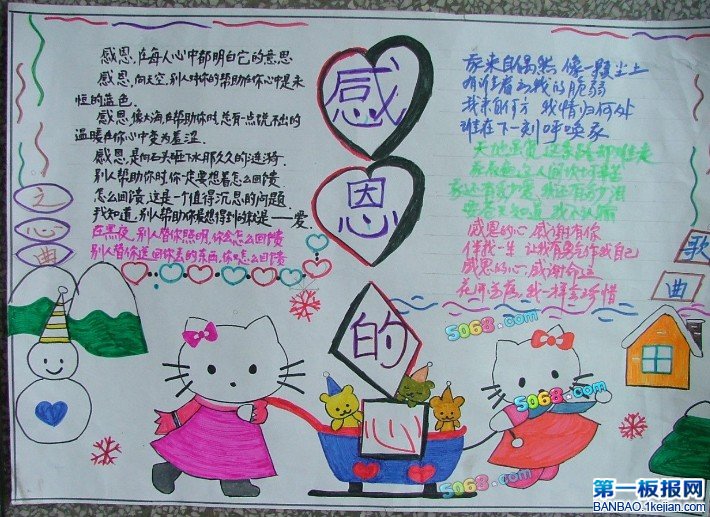 感恩的心
感恩,在每人心中都明白它的意思
感恩,向天空,别人对你的帮助在你心中是永
恒的蓝色.
感恩,像大海,在帮助你时,总有一点说不出的
温暖在你心中变为羞涩.
感恩是向石头砸下水那久久的涟漪.
别人帮助你时你一定要想着怎么回馈
怎么回馈,这是一个值得沉思的问题
我知道,别人帮助你最想得到的就是——爱.
在黑夜,别人替你照明,你会怎么回馈
别人替你送回你丢的东西,你怎么回馈
之心曲
我来自偶然 像一颗尘土
有谁看出我的脆弱
我来自何方 我情归何处
谁在下一刻呼唤我
天地虽宽 这条路却难走
我看
我还有多少爱 我还有多少泪
要苍天知道 我不认输
感恩的心 感谢有你
伴我一生 让我有勇气作我自己
感恩的心 感谢命运
花开花落 我一样会珍惜
歌曲
5068.com
5068.com
5068.com
第一板报网
BANBAO.1kejian.com